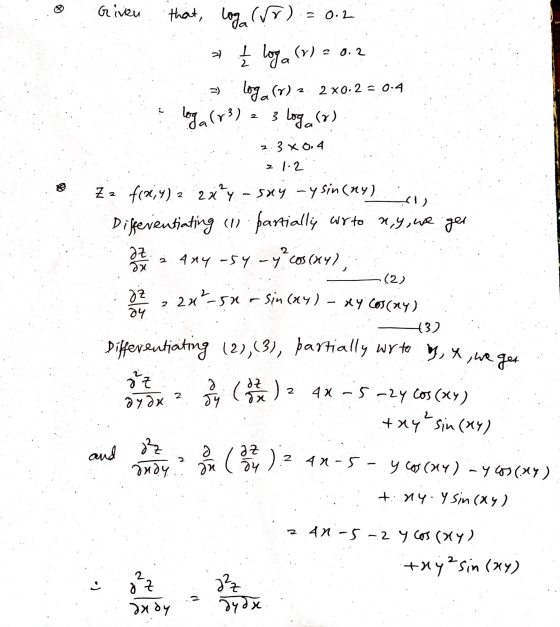 ⊗ Given that, log_a(√r) = 0.2
⇒ 1/2 log_a(r) = 0.2
⇒ log_a(r) = 2×0.2 = 0.4
∴ log_a(r³) = 3 log_a(r)
= 3×0.4
= 1.2
⊗ Z = f(x,y) = 2x²y - 5xy - y sin(xy) ——(1)
Differentiating (1) partially wrto x,y, we get
∂z/∂x = 4xy - 5y - y² cos(xy), ——(2)
∂z/∂y = 2x² - 5x - sin(xy) - xy cos(xy) ——(3)
Differentiating (2),(3), partially wrto y, x, we get
∂²z/∂y∂x = ∂/∂y (∂z/∂x) = 4x - 5 - 2y cos(xy)
+ xy² sin(xy)
and ∂²z/∂x∂y = ∂/∂x (∂z/∂y) = 4x - 5 - y cos(xy) - y cos(xy)
+ xy · y sin(xy)
= 4x - 5 - 2y cos(xy)
+ xy² sin(xy)
∴ ∂²z/∂x∂y = ∂²z/∂y∂x